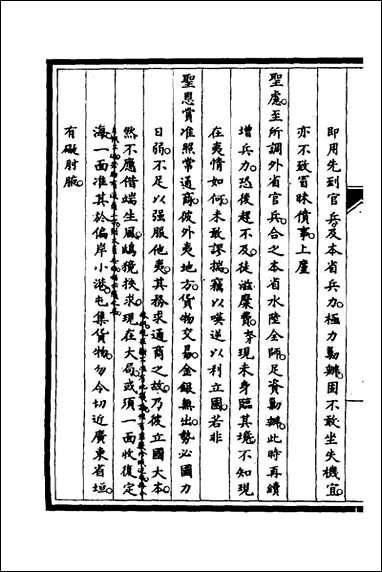 即用先到官兵及本省兵力極力勦辦固不敢坐失機宜
亦不致冒昧僨事上廑
聖慮至所調外省官兵合之本省水陸全師足資勦辦此時再續
增兵力恐後趕不及徒滋糜費芳現未身臨其境不知現
在夷情如何未敢謬揣竊以嘆逆以利立國若非
聖恩賞准照常通商彼外夷地方貨物交易金銀無出勢必國力
日弱不足以強服他夷其務求通商之故乃彼立國大本
然不應借端生風鴟獍挾求現在大局或須一面收復定
海一面准其於偏岸小港屯集貨物勿令切近廣東省垣
有礙肘腋